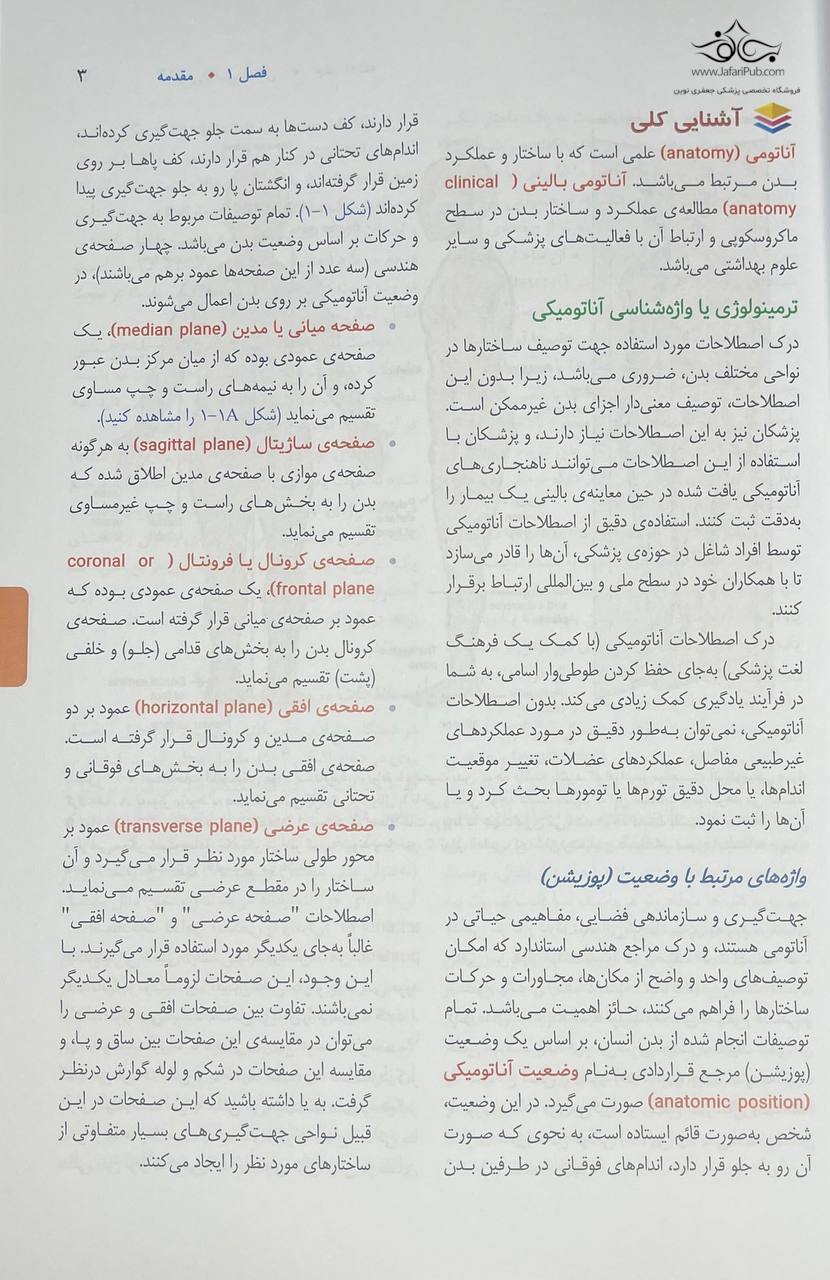 www.JafariPub.com
فروشگاه تخصصی پزشکی جعفری نوین
فصل ۱ • مقدمه
۳
آشنایی کلی
آناتومی (anatomy) علمی است که با ساختار و عملکرد
بدن مرتبط می‌باشد. آناتومی بالینی (clinical
anatomy) مطالعه‌ی عملکرد و ساختار بدن در سطح
ماکروسکوپی و ارتباط آن با فعالیت‌های پزشکی و سایر
علوم بهداشتی می‌باشد.
ترمینولوژی یا واژه‌شناسی آناتومیکی
درک اصطلاحات مورد استفاده جهت توصیف ساختارها در
نواحی مختلف بدن، ضروری می‌باشد، زیرا بدون این
اصطلاحات، توصیف معنی‌دار اجزای بدن غیرممکن است.
پزشکان نیز به این اصطلاحات نیاز دارند، و پزشکان با
استفاده از این اصطلاحات می‌توانند ناهنجاری‌های
آناتومیکی یافت شده در حین معاینه‌ی بالینی یک بیمار را
به‌دقت ثبت کنند. استفاده‌ی دقیق از اصطلاحات آناتومیکی
توسط افراد شاغل در حوزه‌ی پزشکی، آن‌ها را قادر می‌سازد
تا با همکاران خود در سطح ملی و بین‌المللی ارتباط برقرار
کنند.
درک اصطلاحات آناتومیکی (با کمک یک فرهنگ
لغت پزشکی) به‌جای حفظ کردن طوطی‌وار اسامی، به شما
در فرآیند یادگیری کمک زیادی می‌کند. بدون اصطلاحات
آناتومیکی، نمی‌توان به‌طور دقیق در مورد عملکردهای
غیرطبیعی مفاصل، عملکردهای عضلات، تغییر موقعیت
اندام‌ها، یا محل دقیق تورم‌ها یا تومورها بحث کرد و یا
آن‌ها را ثبت نمود.
واژه‌های مرتبط با وضعیت (پوزیشن)
جهت‌گیری و سازماندهی فضایی، مفاهیمی حیاتی در
آناتومی هستند، و درک مراجع هندسی استاندارد که امکان
توصیف‌های واحد و واضح از مکان‌ها، مجاورات و حرکات
ساختارها را فراهم می‌کنند، حائز اهمیت می‌باشد. تمام
توصیفات انجام شده از بدن انسان، بر اساس یک وضعیت
(پوزیشن) مرجع قراردادی به‌نام وضعیت آناتومیکی
(anatomic position) صورت می‌گیرد. در این وضعیت،
شخص به‌صورت قائم ایستاده است، به نحوی که صورت
آن رو به جلو قرار دارد، اندام‌های فوقانی در طرفین بدن
قرار دارند، کف دست‌ها به سمت جلو جهت‌گیری کرده‌اند،
اندام‌های تحتانی در کنار هم قرار دارند، کف پاها بر روی
زمین قرار گرفته‌اند، و انگشتان پا رو به جلو جهت‌گیری پیدا
کرده‌اند (شکل ۱-۱). تمام توصیفات مربوط به جهت‌گیری
و حرکات بر اساس وضعیت بدن می‌باشد. چهار صفحه‌ی
هندسی (سه عدد از این صفحه‌ها عمود برهم می‌باشند)، در
وضعیت آناتومیکی بر روی بدن اعمال می‌شوند.
• صفحه میانی یا مدین (median plane)، یک
صفحه‌ی عمودی بوده که از میان مرکز بدن عبور
کرده، و آن را به نیمه‌های راست و چپ مساوی
تقسیم می‌نماید (شکل ۱-۱A را مشاهده کنید).
• صفحه‌ی ساژیتال (sagittal plane) به هرگونه
صفحه‌ی موازی با صفحه‌ی مدین اطلاق شده که
بدن را به بخش‌های راست و چپ غیرمساوی
تقسیم می‌نماید.
• صفحه‌ی کرونال یا فرونتال (coronal or
frontal plane)، یک صفحه‌ی عمودی بوده که
عمود بر صفحه‌ی میانی قرار گرفته است. صفحه‌ی
کرونال بدن را به بخش‌های قدامی (جلو) و خلفی
(پشت) تقسیم می‌نماید.
• صفحه‌ی افقی (horizontal plane) عمود بر دو
صفحه‌ی مدین و کرونال قرار گرفته است.
صفحه‌ی افقی بدن را به بخش‌های فوقانی و
تحتانی تقسیم می‌نماید.
• صفحه‌ی عرضی (transverse plane) عمود بر
محور طولی ساختار مورد نظر قرار می‌گیرد و آن
ساختار را در مقطع عرضی تقسیم می‌نماید.
اصطلاحات "صفحه عرضی" و "صفحه افقی"
غالباً به‌جای یکدیگر مورد استفاده قرار می‌گیرند. با
این وجود، این صفحات لزوماً معادل یکدیگر
نمی‌باشند. تفاوت بین صفحات افقی و عرضی را
می‌توان در مقایسه‌ی این صفحات بین ساق و پا، و
مقایسه این صفحات در شکم و لوله گوارش درنظر
گرفت. به یا داشته باشید که این صفحات در این
قبیل نواحی جهت‌گیری‌های بسیار متفاوتی از
ساختارهای مورد نظر را ایجاد می‌کنند.